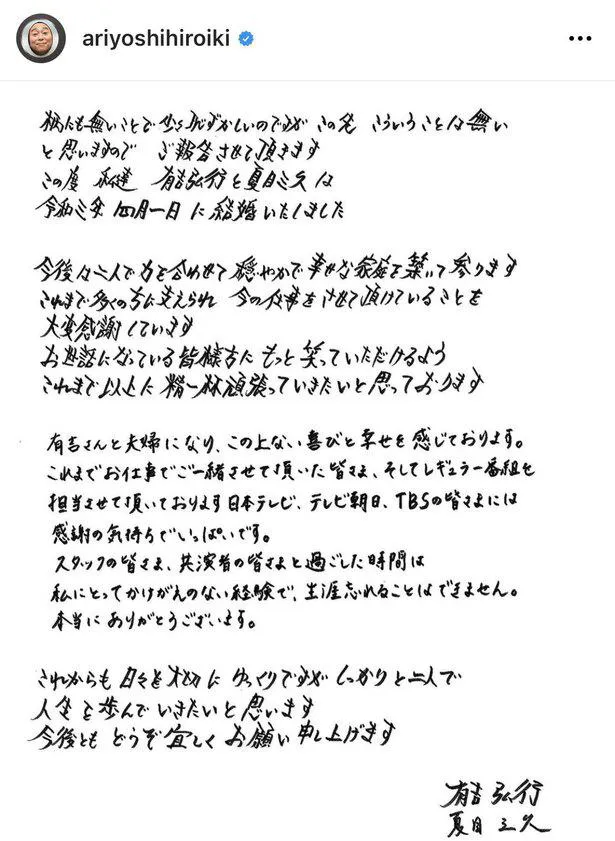 ariyoshihiroiki
柄にも無いことで少々恥ずかしいのですが この先 こういうことは無い
と思いますので ご報告させて頂きます
この度 私達 有吉弘行と夏目三久は
令和三年 四月一日 に結婚いたしました
今後は二人で力を合わせて 穏やかで幸せな家庭を築いて参ります
これまで多くの方に支えられ 今の仕事をさせて頂けていることを
大変感謝しています
お世話になっている皆様方に もっと笑っていただけるよう
これまで以上に精一杯頑張っていきたいと思っております
有吉さんと夫婦になり、この上ない喜びと幸せを感じております。
これまでお仕事でご一緒させて頂いた皆さま、そしてレギュラー番組を
担当させて頂いております日本テレビ、テレビ朝日、TBSの皆さまには
感謝の気持ちでいっぱいです。
スタッフの皆さま、共演者の皆さまと過ごした時間は
私にとってかけがえのない経験で、生涯忘れることはできません。
本当にありがとうございます。
これからも 日々を大切に ゆっくりですが しっかりと二人で
人生を歩んでいきたいと思います
今後とも どうぞ宜しく お願い申し上げます
有吉 弘行
夏目 三久